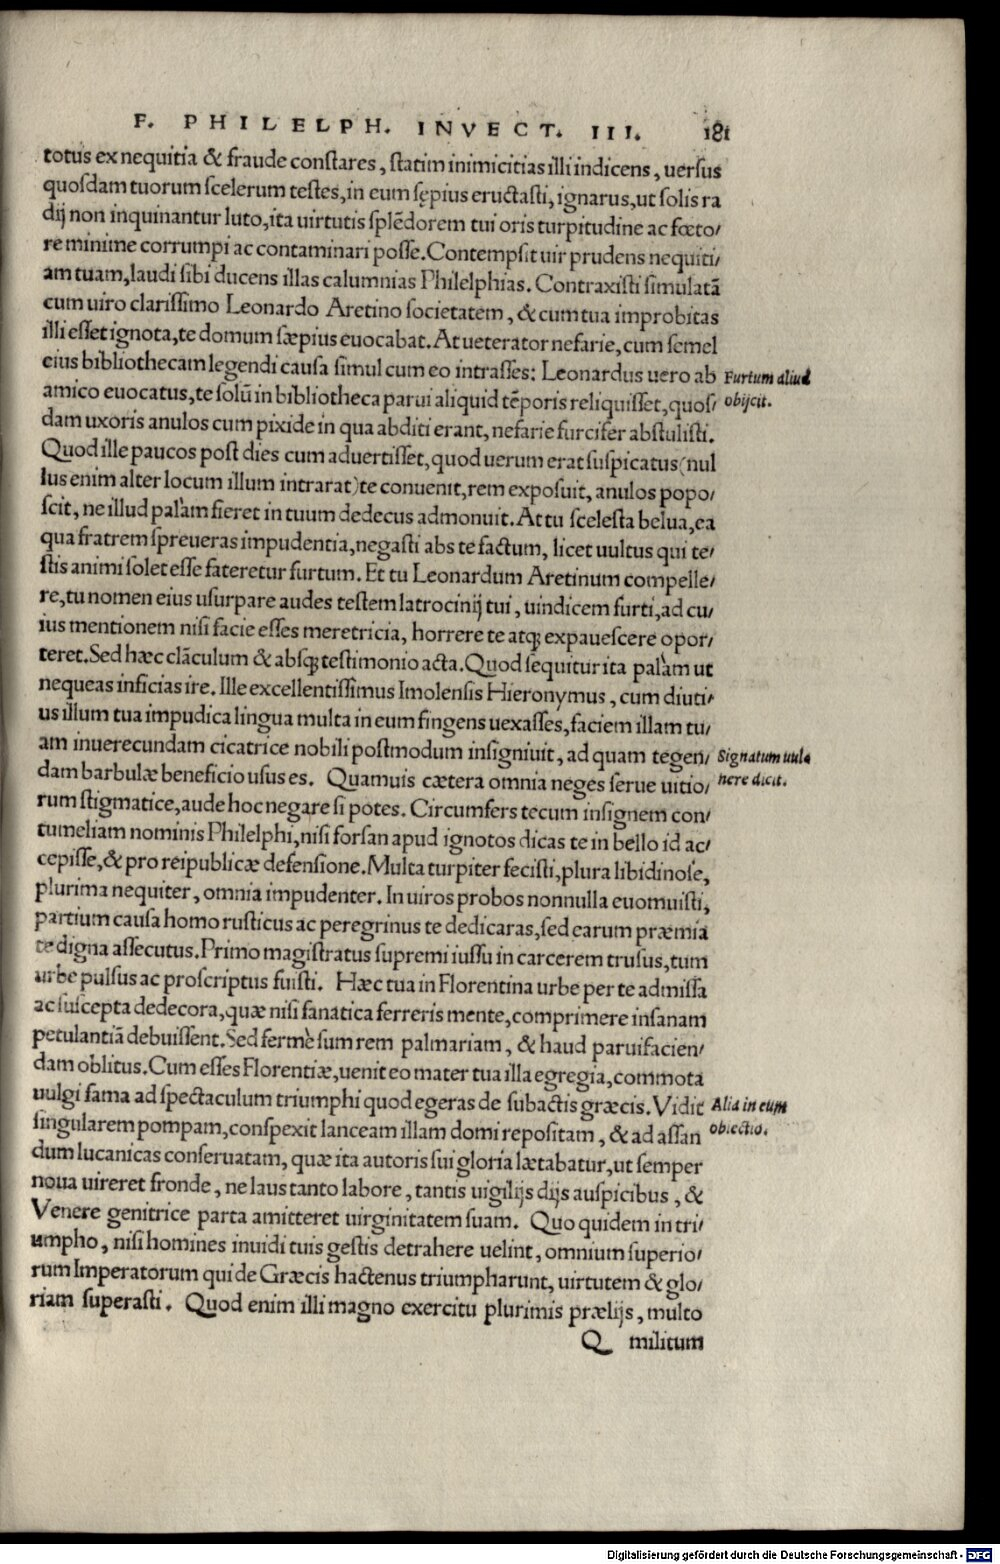 F. PHILELPH. INVECT. III. 181
totus ex nequitia & fraude constares, statim inimicitias illi indicens, uersus
quosdam tuorum scelerum testes, in eum sępius eructasti, ignarus, ut solis ra
dij non inquinantur luto, ita uirtutis splēdorem tui oris turpitudine ac fœto/
re minime corrumpi ac contaminari posse. Contempsit uir prudens nequiti/
am tuam, laudi sibi ducens illas calumnias Philelphias. Contraxisti simulatā
cum uiro clarissimo Leonardo Aretino societatem, & cum tua improbitas
illi esset ignota, te domum sæpius euocabat. At ueterator nefarie, cum semel
eius bibliothecam legendi causa simul cum eo intrasses: Leonardus uero ab
Furtum aliud
amico euocatus, te solū in bibliotheca parui aliquid tēporis reliquisset, quos/
obijcit.
dam uxoris anulos cum pixide in qua abditi erant, nefarie furcifer abstulisti.
Quod ille paucos post dies cum aduertisset, quod uerum erat suspicatus (nul
lus enim alter locum illum intrarat) te conuenit, rem exposuit, anulos popo/
scit, ne illud palàm fieret in tuum dedecus admonuit. At tu scelesta belua, ea
qua fratrem spreueras impudentia, negasti abs te factum, licet uultus qui te/
stis animi solet esse fateretur furtum. Et tu Leonardum Aretinum compelle/
re, tu nomen eius usurpare audes testem latrocinij tui, uindicem furti, ad cu/
ius mentionem nisi facie esses meretricia, horrere te atq; expauescere opor/
teret. Sed hæc clāculum & absq; testimonio acta. Quod sequitur ita palàm ut
nequeas inficias ire. Ille excellentissimus Imolensis Hieronymus, cum diuti/
us illum tua impudica lingua multa in eum fingens uexasses, faciem illam tu/
am inuerecundam cicatrice nobili postmodum insigniuit, ad quam tegen/
Signatum uul
dam barbulæ beneficio usus es. Quamuis cætera omnia neges serue uitio/
nere dicit.
rum stigmatice, aude hoc negare si potes. Circumfers tecum insignem con/
tumeliam nominis Philelphi, nisi forsan apud ignotos dicas te in bello id ac/
cepisse, & pro reipublicæ defensione. Multa turpiter fecisti, plura libidinose,
plurima nequiter, omnia impudenter. In uiros probos nonnulla euomuisti,
partium causa homo rusticus ac peregrinus te dedicaras, sed earum præmia
te digna assecutus. Primo magistratus supremi iussu in carcerem trusus, tum
urbe pulsus ac proscriptus fuisti. Hæc tua in Florentina urbe per te admissa
ac suscepta dedecora, quæ nisi fanatica ferreris mente, comprimere insanam
petulantiā debuissent. Sed fermè sum rem palmariam, & haud paruifacien/
dam oblitus. Cum esses Florentiæ, uenit eo mater tua illa egregia, commota
uulgi fama ad spectaculum triumphi quod egeras de subactis græcis. Vidit
Alia in eum
singularem pompam, conspexit lanceam illam domi repositam, & ad assan
obiectio.
dum lucanicas conseruatam, quæ ita autoris sui gloria lætabatur, ut semper
noua uireret fronde, ne laus tanto labore, tantis uigilijs dijs auspicibus, &
Venere genitrice parta amitteret uirginitatem suam. Quo quidem in tri/
umpho, nisi homines inuidi tuis gestis detrahere uelint, omnium superio/
rum Imperatorum qui de Græcis hactenus triumpharunt, uirtutem & glo/
riam superasti. Quod enim illi magno exercitu plurimis prælijs, multo
Q militum
Digitalisierung gefördert durch die Deutsche Forschungsgemeinschaft - DFG